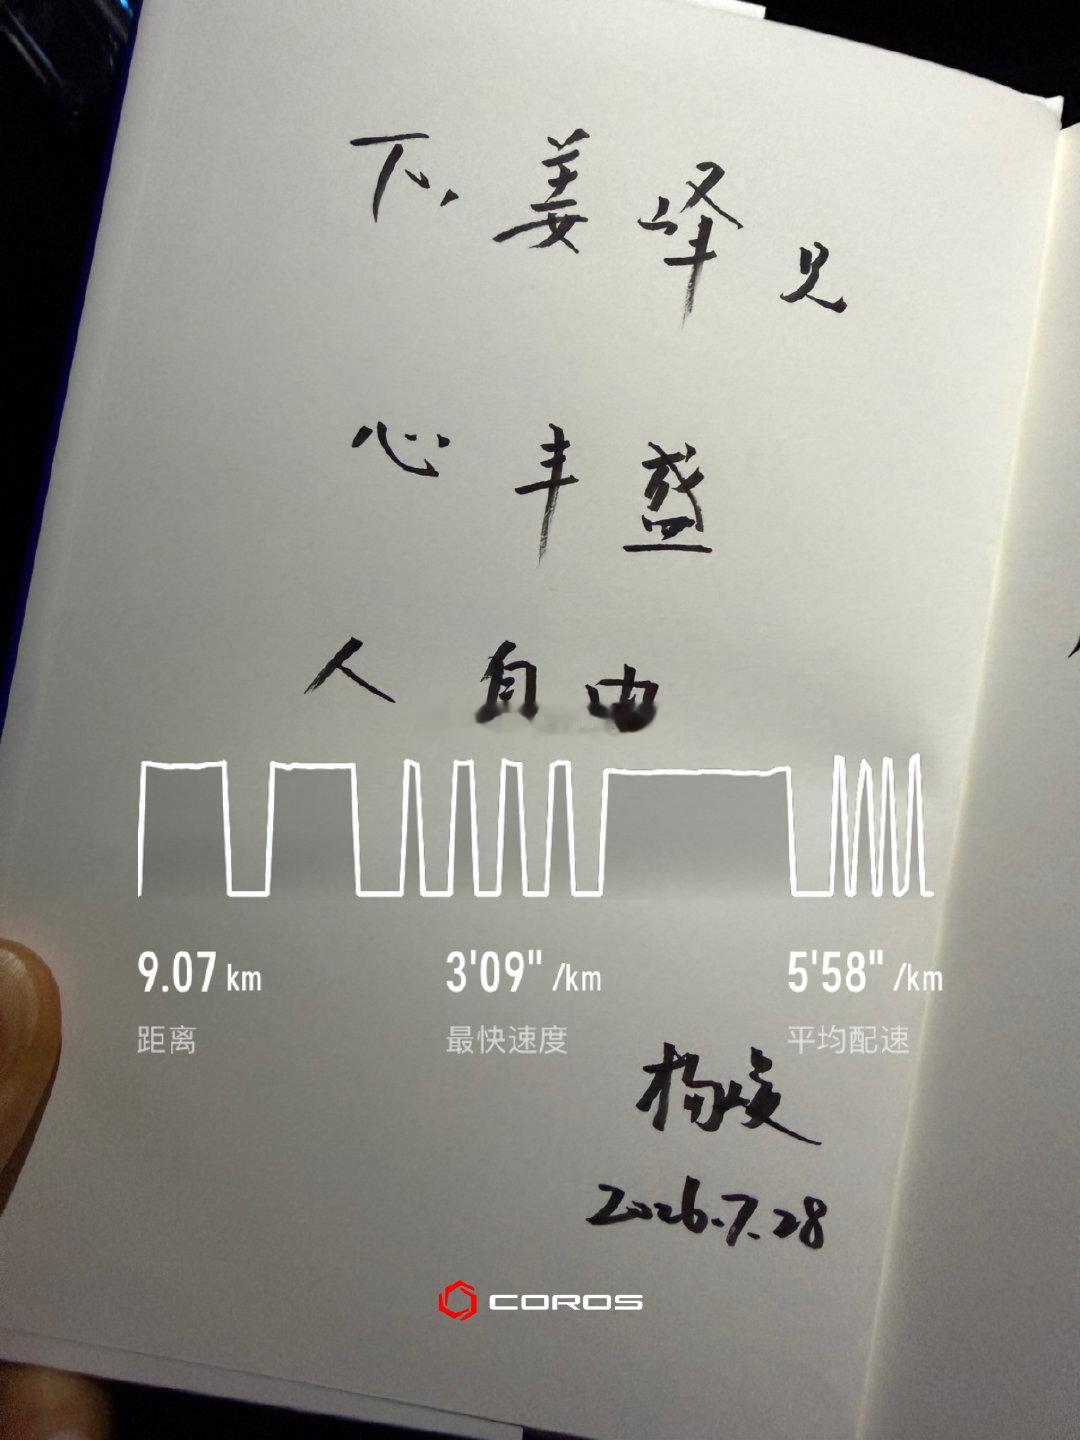 姜峰兄
心丰盛
人自由
9.07 km
3'09" /km
5'58" /km
距离
最快速度
平均配速
杨
2026.7.28
COROS